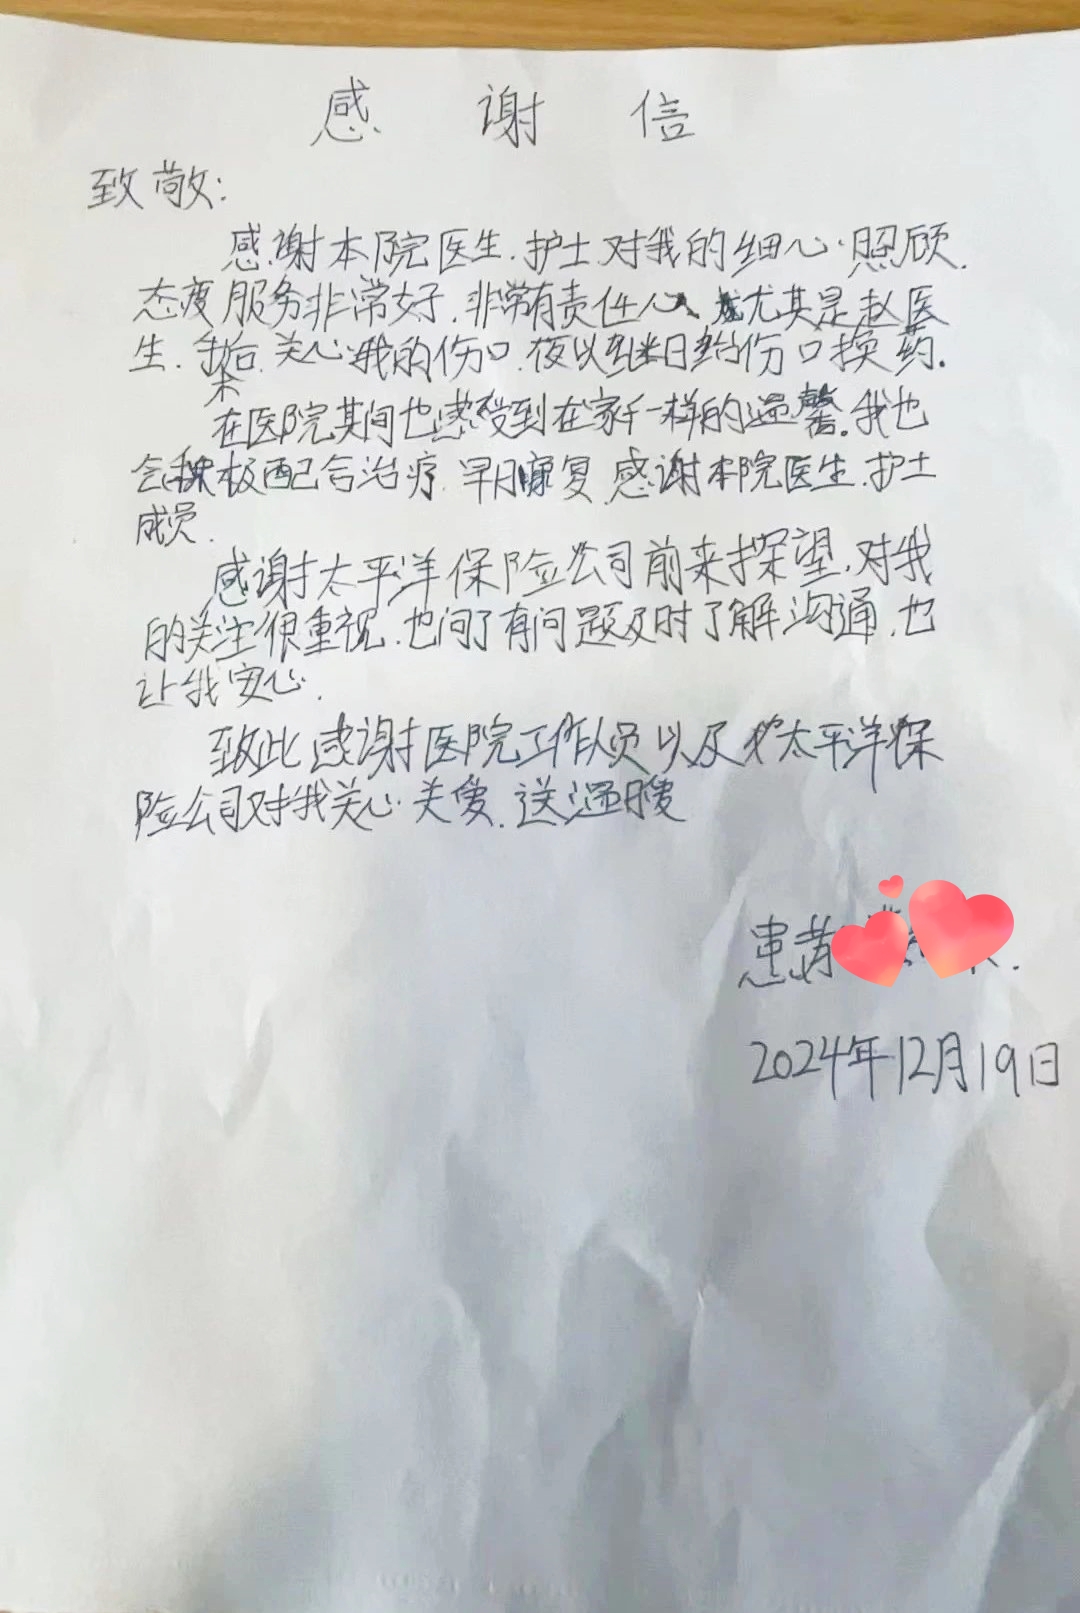 感谢信
致敬:
感谢本院医生.护士对我的细心照顾.
态度服务非常好.非常有责任心、尤其是赵医
生.术后关心我的伤口.夜以继日给伤口换药.
在医院其间也感受到在家千一样的温馨.我也
会积极配合治疗.早日康复.感谢本院医生.护士
成员.
感谢太平洋保险公司前来探望.对我
的关注很重视.也问了有问题及时了解沟通.也
让我安心.
致此感谢医院工作人员以及太平洋保
险公司对我关心关爱.送温暖
患者
2024年12月19日